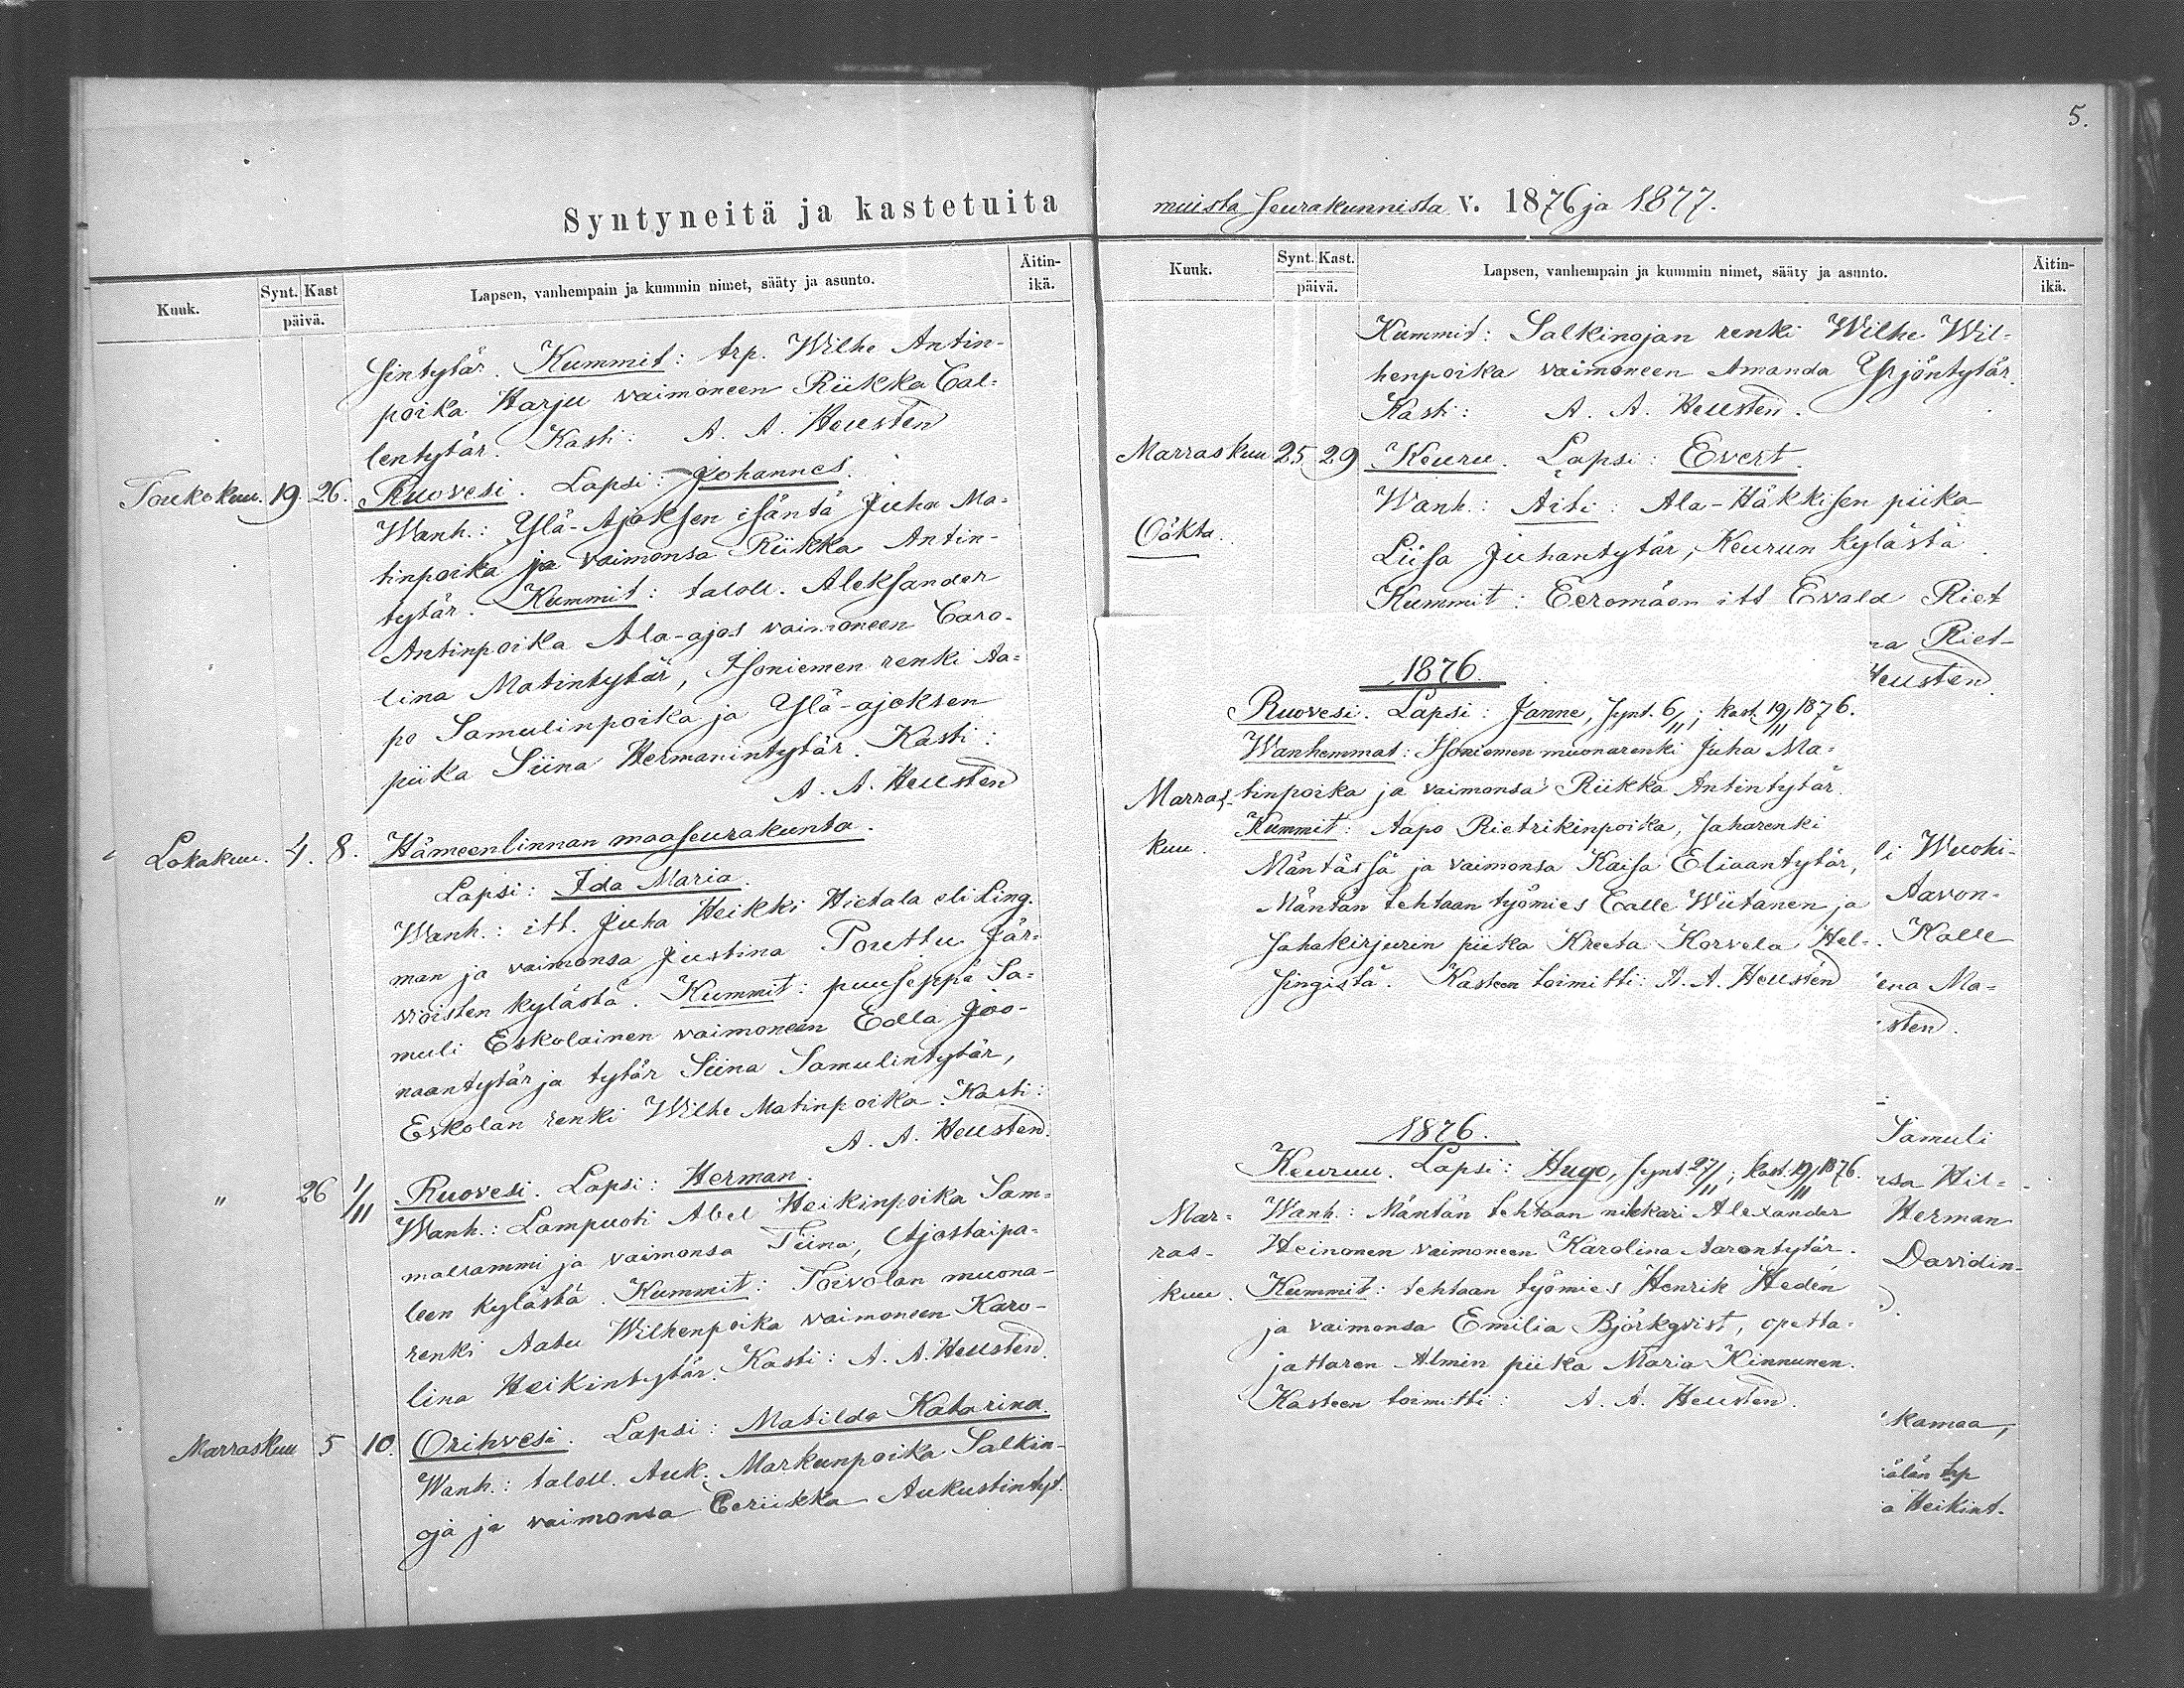 Syntyneitä ja kastetuita
Kuuk.
Synt.
Kast
päivä.
Lapsen, vanhempain ja kummin nimet, sääty ja asunto.
Äitin-
ikä.
sintytär. Kummit: trp. Wilhe Antin-
poika Harju vaimoneen Riikka Cal-
lentytär. Kasti: A. A. Heusten
Toukokuu. 19. 26. Ruovesi. Lapsi: Johannes.
Wanh.: Ylä-Ajoksen isäntä Juha Ma-
tinpoika ja vaimonsa Riikka Antin-
tytär. Kummit: taloll. Aleksander
Antinpoika Ala-ajos vaimoneen Caro-
lina Matintytär, Isoniemen renki Aa-
po Samulinpoika ja Ylä-ajoksen
piika Siina Hermanintytär. Kasti:
A. A. Heusten
Lokakuu. 4. 8. Hämeenlinnan maaseurakunta.
Lapsi: Ida Maria.
Wanh.: itt. Juha Heikki Hietala eli Ling-
man ja vaimonsa Justina Porttu Jär-
vioisten kylästä. Kummit: puuseppä Sa-
muli Eskolainen vaimoneen Edla Joo-
naantytär ja tytär Siina Samulintytär,
Eskolan renki Wilhe Matinpoika. Kasti:
A. A. Heusten.
" 26 1/11 Ruovesi. Lapsi: Herman.
Wanh.: Lampuoti Abel Heikinpoika Sam-
malrammi ja vaimonsa Tiina, Ajostaipa-
leen kylästä. Kummit: Toivolan muona-
renki Aatu Wilhenpoika vaimoneen Karo-
lina Heikintytär. Kasti: A. A. Heusten.
Marraskuu 5 10. Orihvesi. Lapsi: Matilda Katarina.
Wanh.: taloll. Auk. Markunpoika Salkin-
oja ja vaimonsa Eeriikka Aukustintyt.
5.
muista seurakunnista v. 1876 ja 1877.
Kuuk.
Synt.
Kast.
päivä.
Lapsen, vanhempain ja kummin nimet, sääty ja asunto.
Äitin-
ikä.
Kummit: Salkinojan renki Wilhe Wil-
henpoika vaimoneen Amanda Yrjöntytär.
Kasti: A. A. Heusten.
Marraskuu 25 29 Keuru. Lapsi: Evert.
Wanh.: Äiti: Ala-Häkkisen piika
Oäkta.
Liisa Juhantytär, Keurun kylästä.
Kummit: Eeromäen itt Evald Riet
na Riet-
Heusten.
1876.
Ruovesi. Lapsi: Janne, synt. 6/11; kast. 19/11 1876.
Wanhemmat: Isoniemen muonarenki Juha Ma-
Marras- tinpoika ja vaimonsa Riikka Antintytär.
kuu. Kummit: Aapo Rietrikinpoika, saharenki
Mäntässä ja vaimonsa Kaisa Eliaantytär,
Mäntän tehtaan työmies Calle Wiitanen ja
sahakirjurin piika Kreeta Korvela Hel-
singistä. Kasteen toimitti: A. A. Heusten
i Wuohi-
Aavon-
Kalle
ena Ma-
sten.
1876.
Keuruu. Lapsi: Hugo, synt 27/11; kast. 19/11 1876.
Mar- Wanh.: Mäntän tehtaan nikkari Alexander
ras- Heinonen vaimoneen Karolina Aarontytär.
kuu. Kummit: tehtaan työmies Henrik Hedén
ja vaimonsa Emilia Björkqvist, opetta-
jattaren Almin piika Maria Kinnunen.
Kasteen toimitti: A. A. Heusten.
Samuli
nsa Hil-
Herman
Davidin-
kamaa,
älän trp
a Heikint.